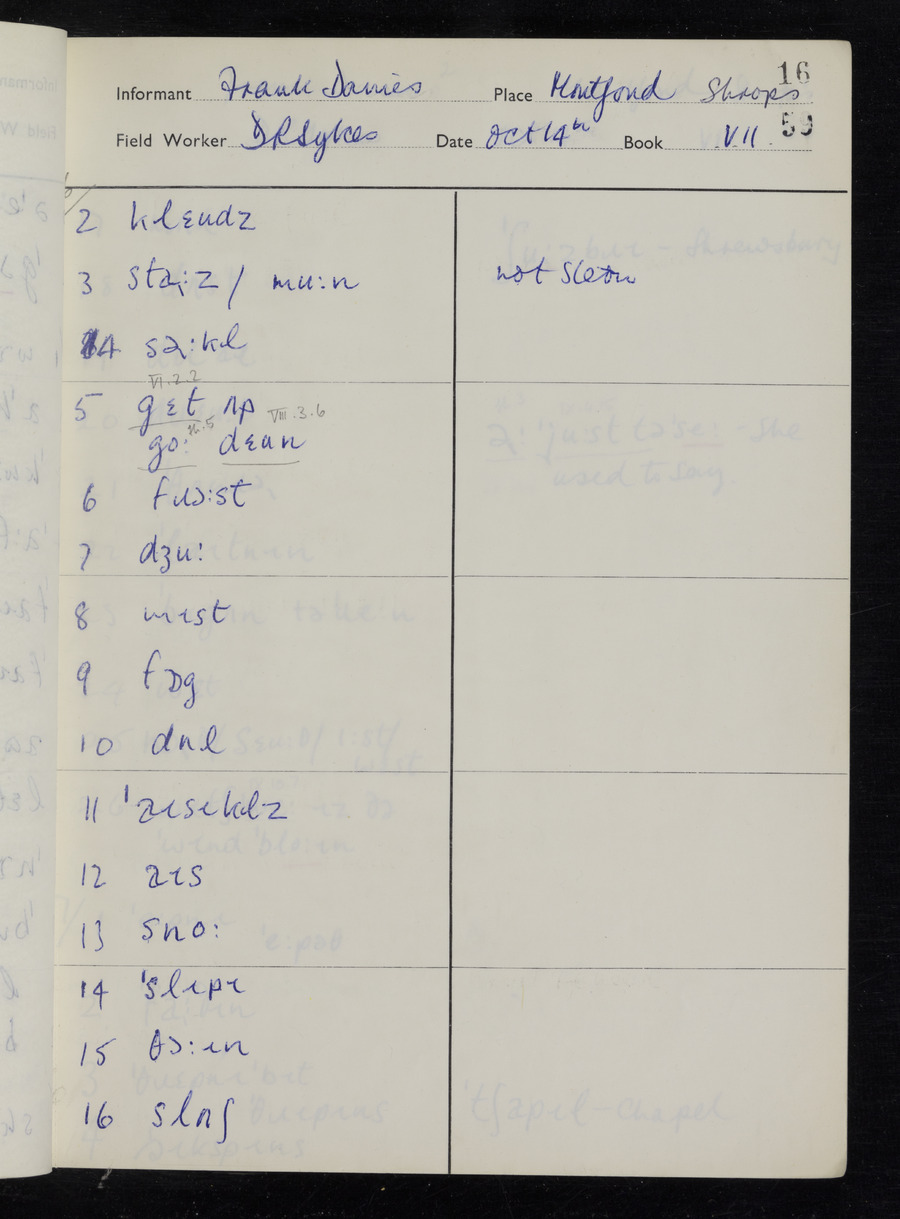 16
Informant Frank Davies Place Montford Shrops
59
Field Worker D R Sykes Date Oct 14th Book VII
2 klɛudz
3 sta:z / mu:n not
4 sə:kl
VI.2.2
5 gɛt ʌp VIII.3.6
go: dɛun
6 frɔ:st
7 dʒu:
8 mɪst
9 fɒg
10 dʌl
11 'aɪsɪklz
12 aɪs
13 sno:
14 'slɪpɪ
15 θɔ:ɪn
16 slʌʃ